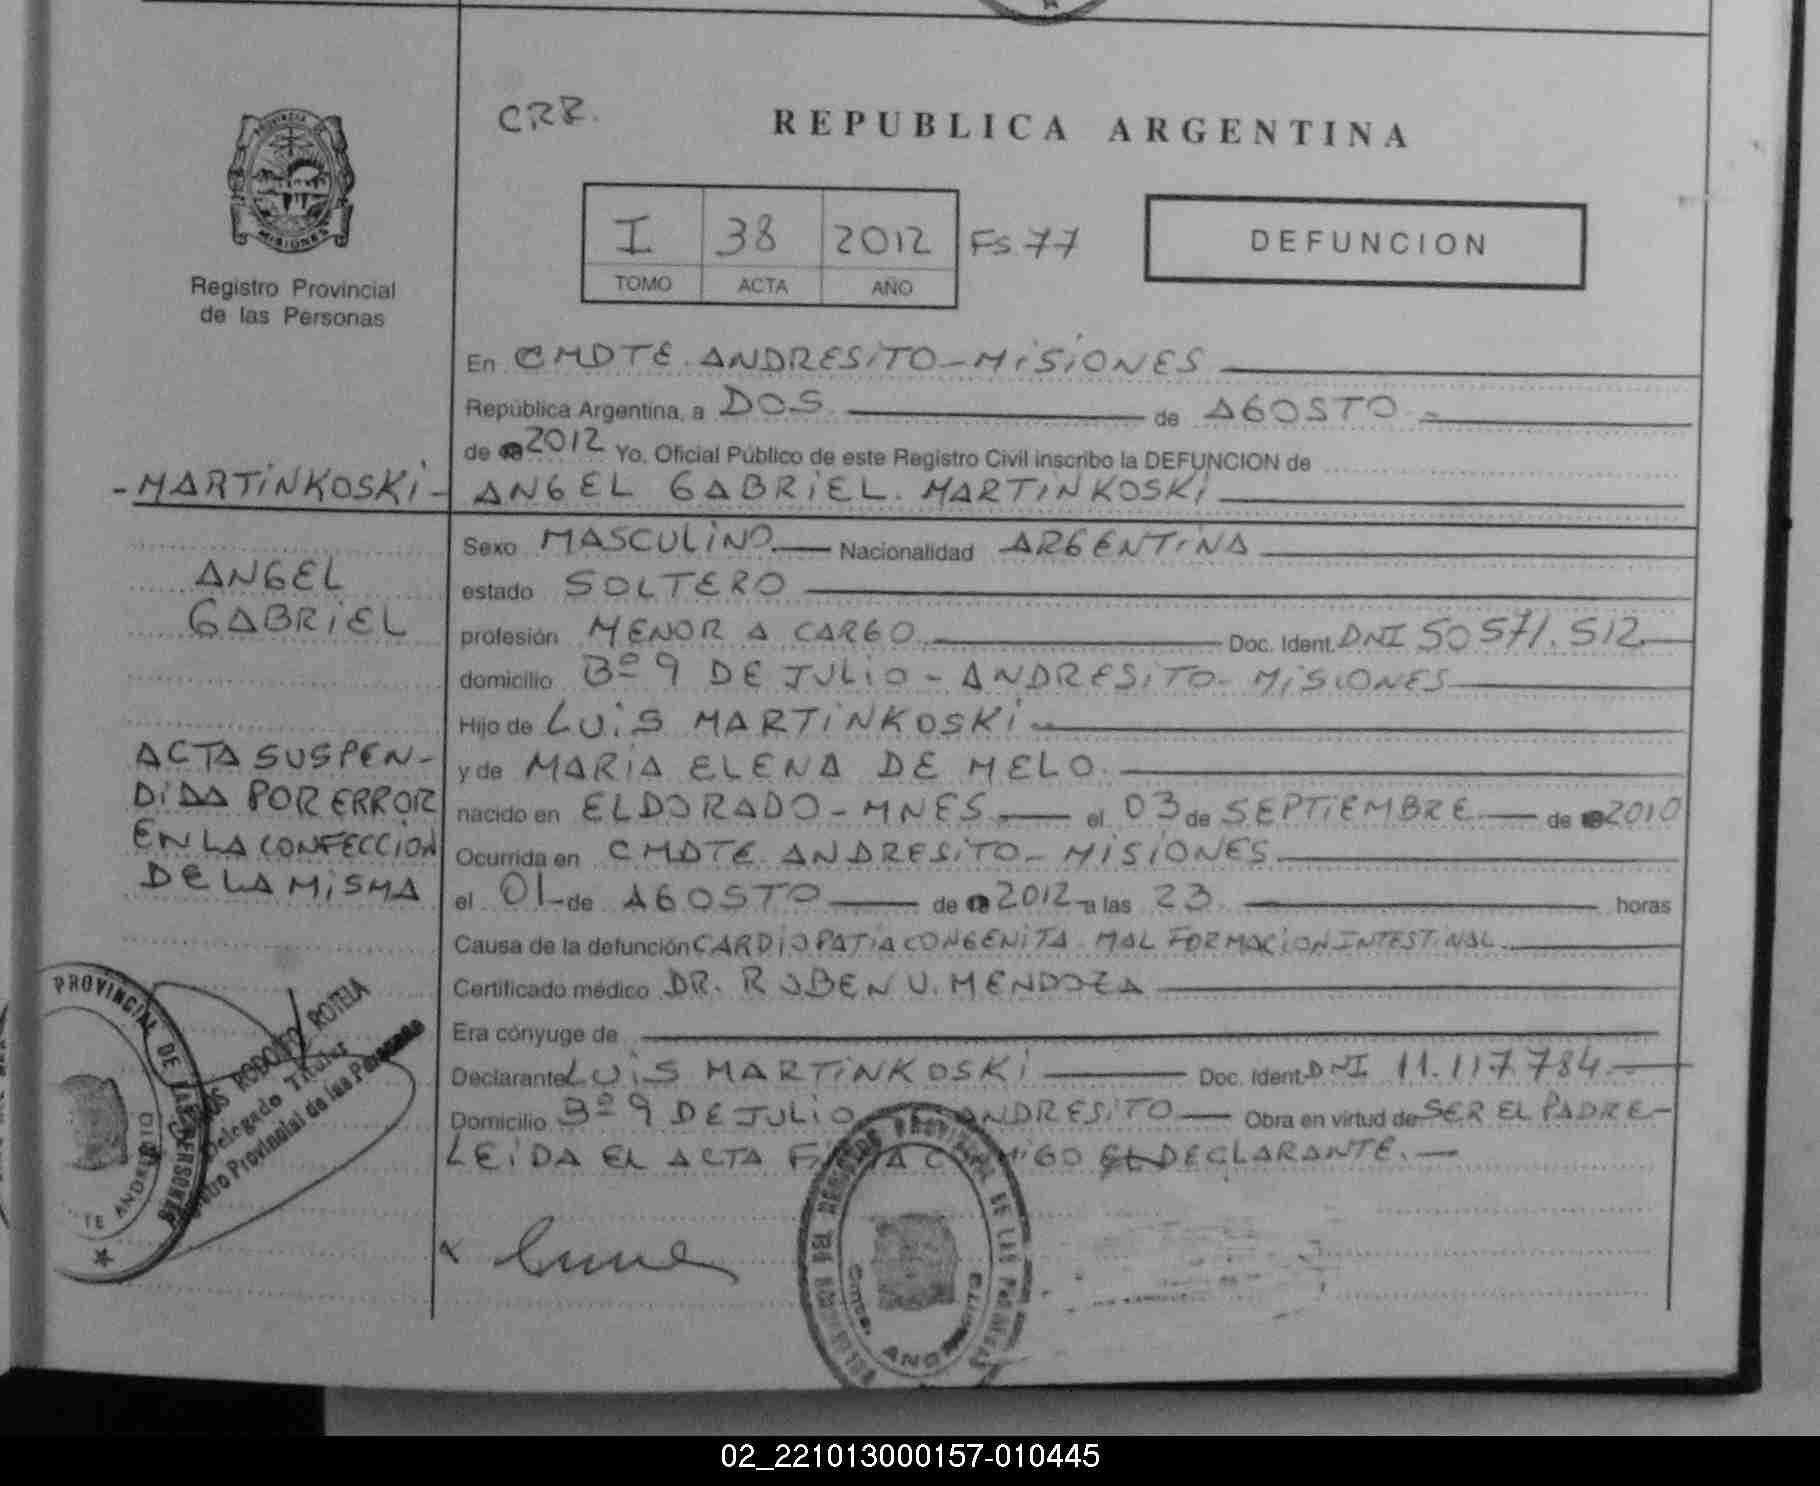 CRR.
REPUBLICA ARGENTINA
PROVINCIA DE
MISIONES
Registro Provincial
de las Personas
I 38 2012 Fs. 77
TOMO ACTA AÑO
DEFUNCION
En CMDTE. ANDRESiTO - MiSiONES
República Argentina, a DOS de AGOSTO
de 2012 Yo, Oficial Público de este Registro Civil inscribo la DEFUNCION de
ANGEL GABRiEL. MARTiNKOSKi
Sexo MASCULiNO Nacionalidad ARGENTiNA
estado SOLTERO
profesión MENOR A CARGO Doc. Ident. DNI 50 571.512
domicilio Bº 9 DE JULiO - ANDRESiTO - MiSiONES
Hijo de LUiS MARTiNKOSKi
y de MARiA ELENA DE MELO
nacido en ELDORADO - MNES el 03 de SEPTiEMBRE de 2010
Ocurrida en CMDTE. ANDRESiTO - MiSiONES
el 01 de AGOSTO de 2012 a las 23 horas
Causa de la defunción CARDiOPATiA CONGENiTA MAL FORMACiON INTESTiNAL
Certificado médico DR. RUBEN U. MENDOZA
Era cónyuge de
Declarante LUiS MARTiNKOSKi Doc. Ident. DNI 11.117.784
Domicilio Bº 9 DE JULiO ANDRESiTO Obra en virtud de SER EL PADRE -
LEiDA EL ACTA DECLARANTE.
- MARTiNKOSKi -
ANGEL
GABRiEL
ACTA SUSPEN-
DiDA POR ERROR
EN LA CONFECCiON
DE LA MiSMA
PROVINCIAL DE
RODOLFO ROTELA
Delegado Titular
Provincial de las Personas
PROVINCIAL DE LAS PERSONAS
02_221013000157-010445